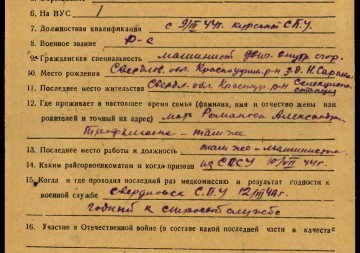 6. На ВУС 1
7. Должностная квалификация с 9/III 44г. курсант С.П.У.
8. Военное звание р-с
9. Гражданская специальность машинист двиг. внутр. сгор.
10. Место рождения Свердлов. обл. Красноуфим. р-н з-д Н. Сарана
11. Последнее место жительства Свердл. обл. Красноуф. р-н Селекцион. станция
12. Где проживает в настоящее время семья (фамилия, имя и отчество жены или
родителей и точный их адрес) мать Романова Александра
Трофимовна - там же
13. Последнее место работы и должность там же - машинистом
14. Каким райгорвоенкоматом и когда призван из СПУ 10/VII 44г.
15. Когда и где проходил последний раз медкомиссию и результат годности к
военной службе Свердловск С.П.У 12/III 44г.
годный к службе
16. Участие в Отечественной войне (в составе какой последней части в качестве